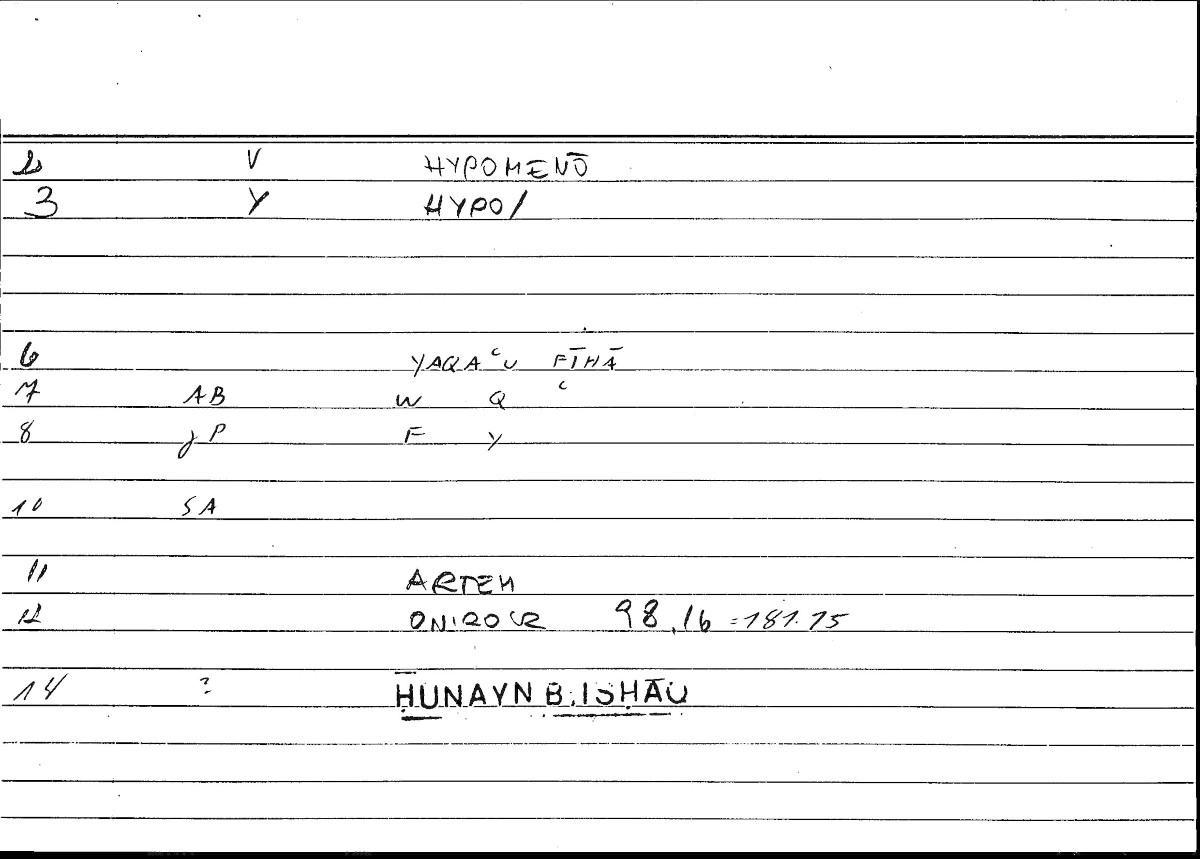 2 V HYPOMENŌ
3 Y HYPO/
6 YAQAʿU FĪHĀ
7 AB W Q ʿ
8 JP F Y
10 SA
11 ARTEM
12 ONIROCR 98,16 = 181.15
14 ? ḤUNAYN B. ISḤĀQ